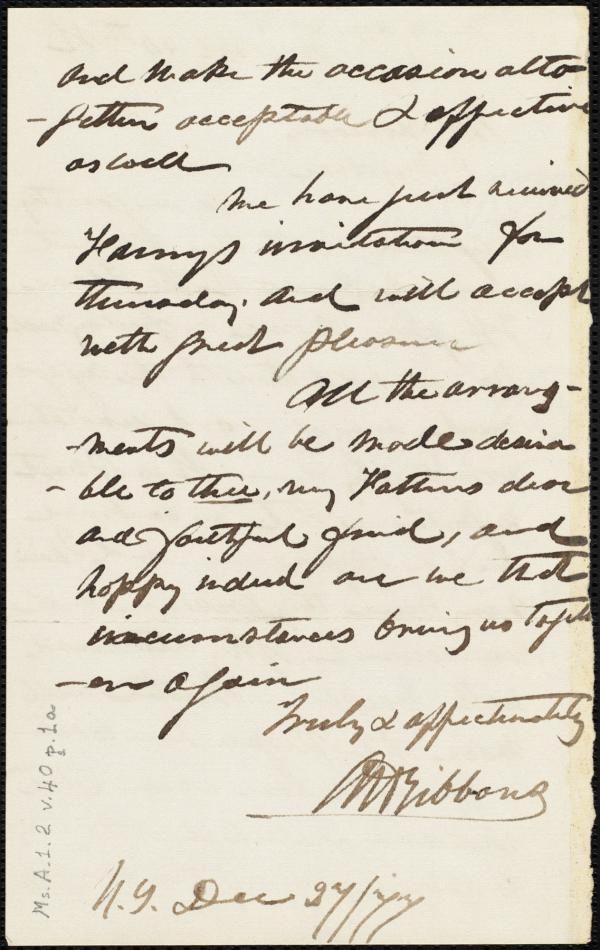 and make the occasion alto-
-gether acceptable & effective
as well
We have just received
Harry's invitation for
Thursday. and will accept
with great pleasure
All the arrang-
-ments will be made desira
-ble to thee, my Father's dear
and faithful friend, and
happy indeed are we that
circumstances bring us togeth
-er again
Truly & affectionately
AHGibbons
N.Y. Dec 27/77
Ms.A.1.2 v.40 p.1a